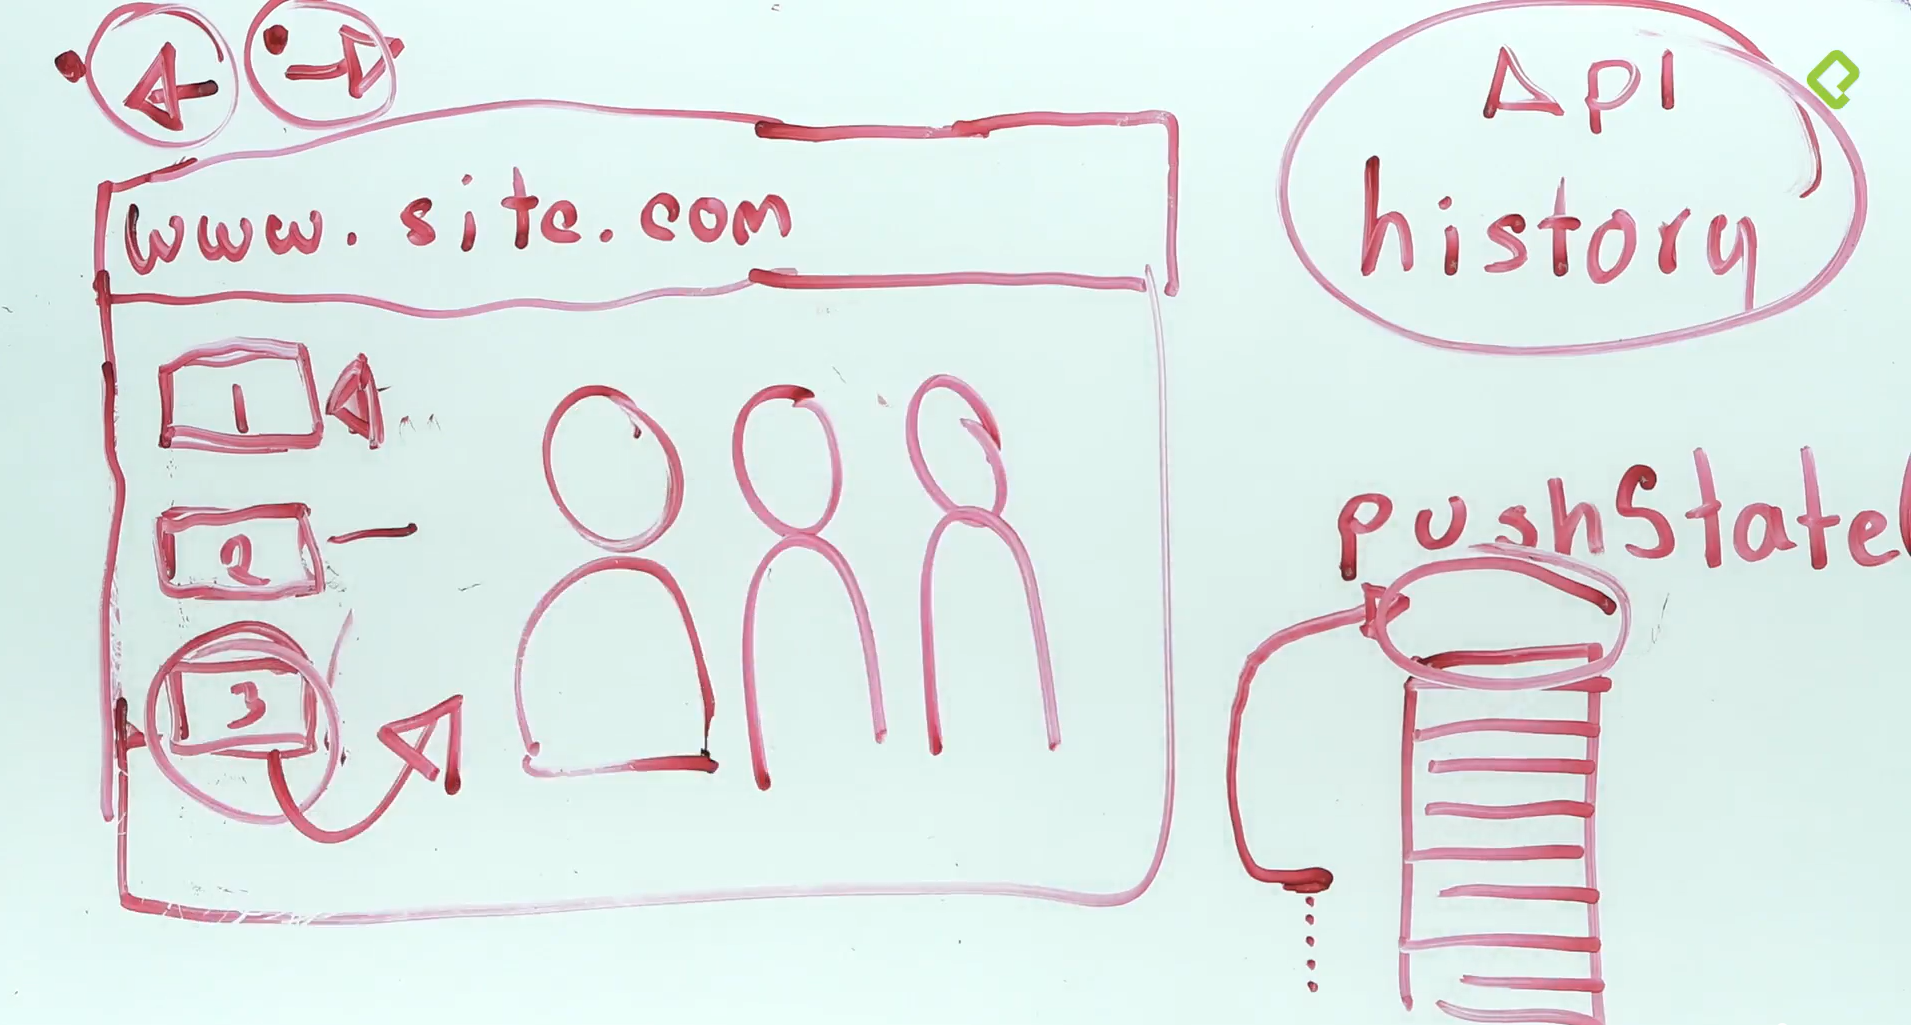 www.site.com
1
2
3
Api
history
pushState(